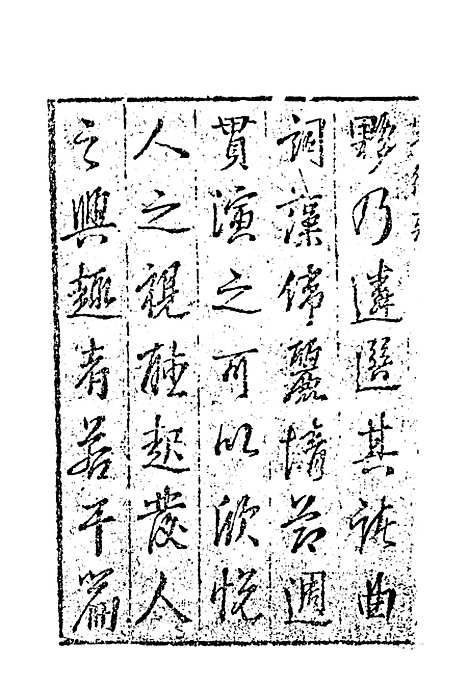 夥乃遴選其曲
詞藻偉麗情節週
貫演之可以欣悅
人之視聽起發人
之興趣者若干篇